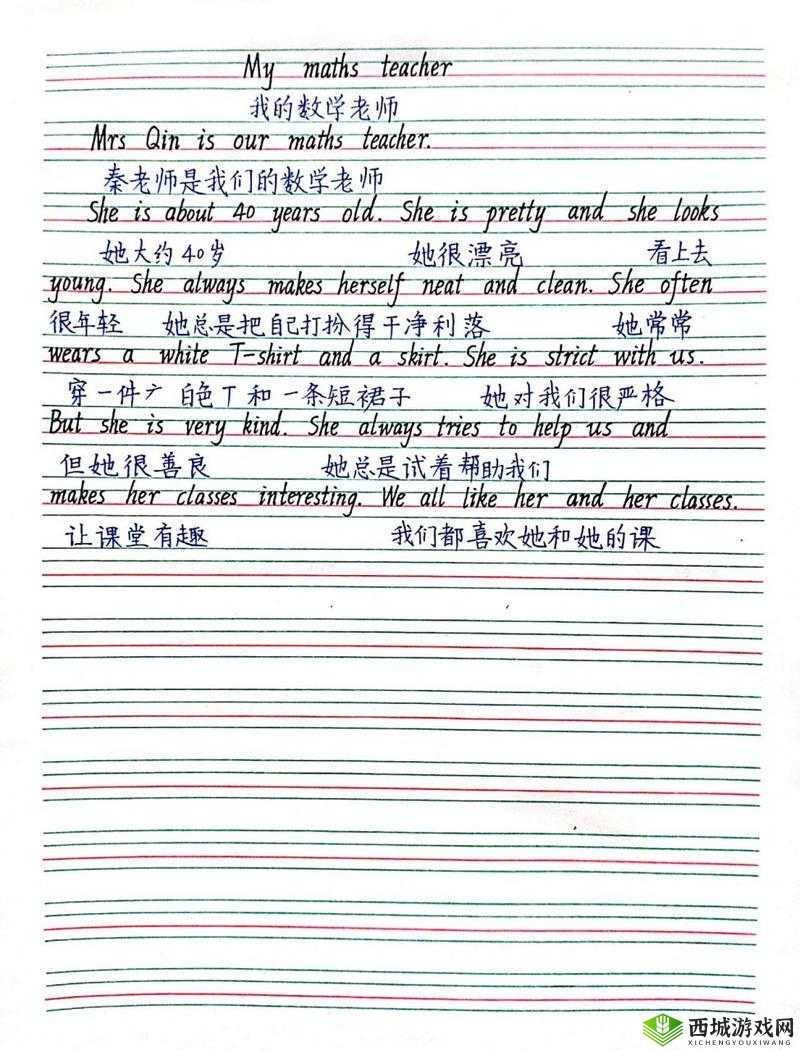 My maths teacher
我的数学老师
Mrs Qin is our maths teacher.
秦老师是我们的数学老师
She is about 40 years old. She is pretty and she looks
她大约40岁 她很漂亮 看上去
young. She always makes herself neat and clean. She often
很年轻 她总是把自己打扮得干净利落 她常常
wears a white T-shirt and a skirt. She is strict with us.
穿一件 白色T和一条短裙子 她对我们很严格
But she is very kind. She always tries to help us and
但她很善良 她总是试着帮助我们
makes her classes interesting. We all like her and her classes.
让课堂有趣 我们都喜欢她和她的课
西城游戏网
XICHENGYOUXIWANG